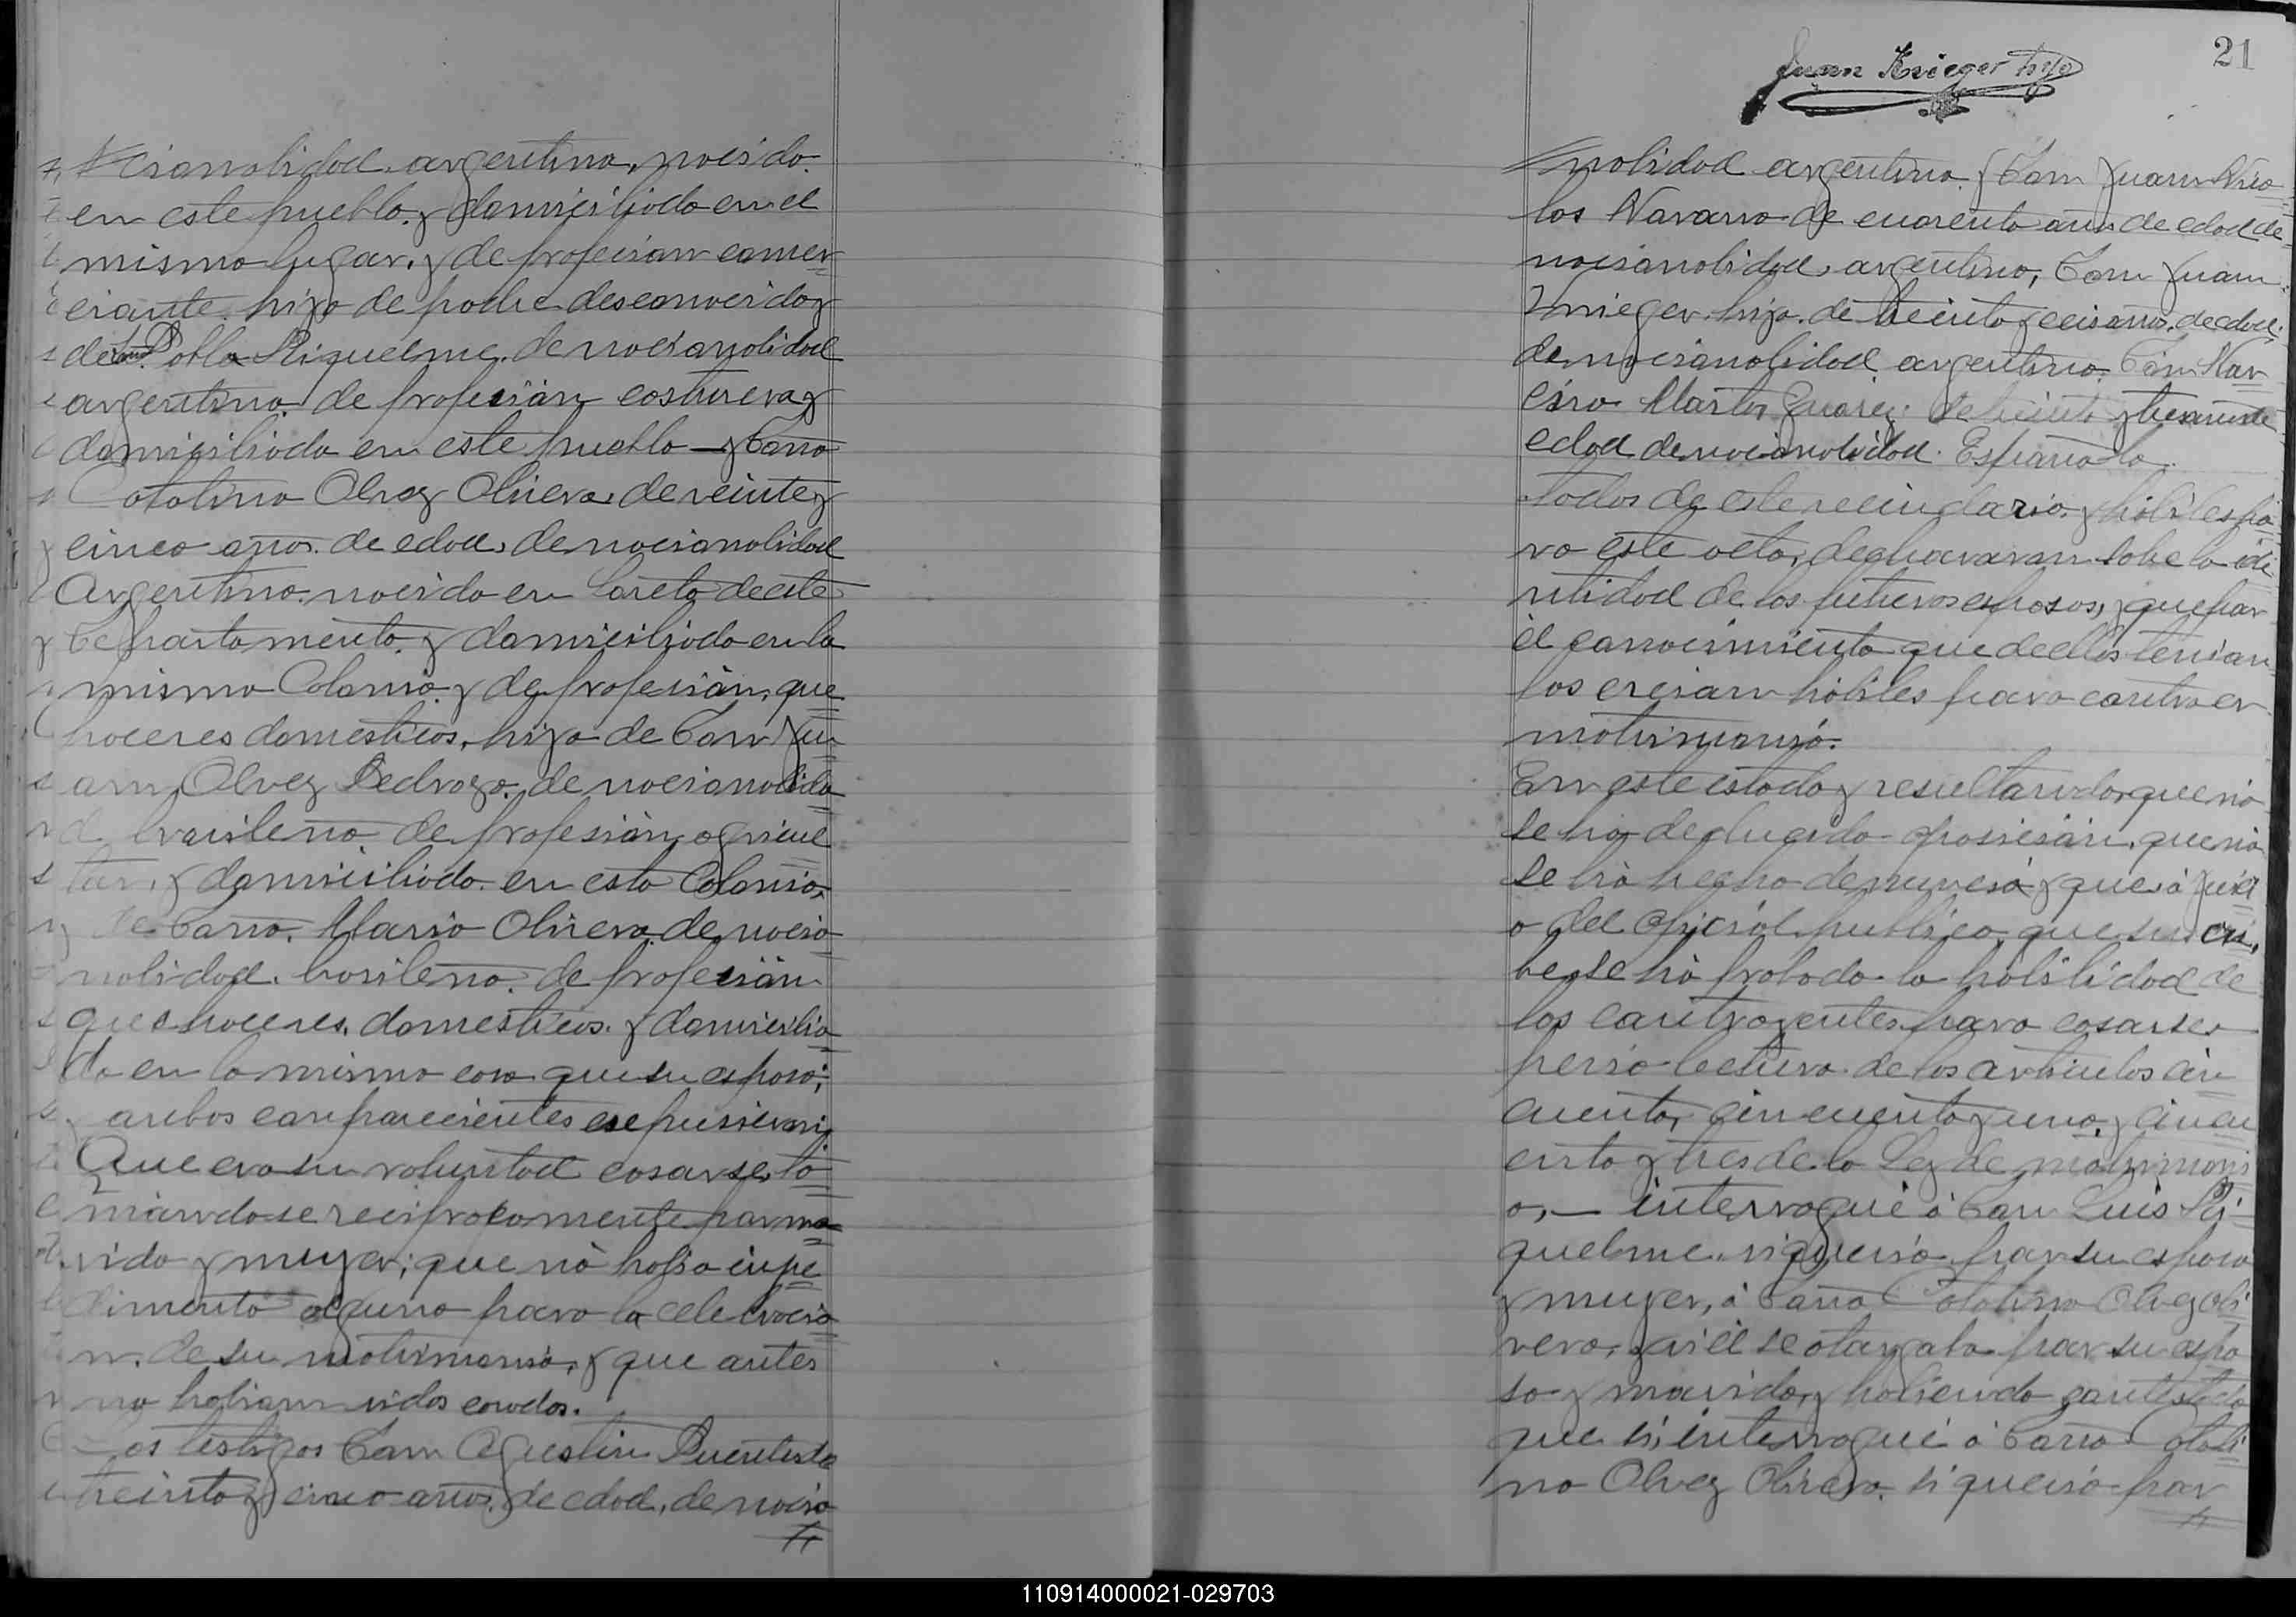 cionalidad argentina, nacido
en este pueblo y domiciliado en el
mismo lugar, y de profecian comer
ciante hijo de padre desconocido y
de Pabla Riquelme, de nacionalidad
argentina de profesián costurera y
domiciliada en este pueblo — y Dona
Catalina Alvez Olivera, de veinte y
cinco años de edad, de nacionalidad
Argentina nacida en Loreto de este
Departamento y domiciliada en la
misma Colonia y de profesián, que
haceres domesticos, hija de Don Ju
an Alvez Pedrozo de nacionalida
d braileña de profesián agricul
tor, y domiciliado en esta Colonia,
y de Dona Maria Olivera de nacio
nalidad brasilena de profesián
quehaceres domesticos y domicilia
da en la misma casa que su esposo;
ambos comparecientes espusieron;
Que era su voluntad casarse, to
mándose reciprocamente por ma
rido y mujer; que nó habia impe
dimento alguno para la celebracio
n de su matrimonio, y que antes
no habian sidos casados.
Los testigos Don Agustin Puentes de
treinta y cinco años de edad, de nacio
21
Juan Krieger hijo
nalidad argentina. Don Juan Nico
las Navarro de cuarenta años de edad de
nacionalidad argentina, Don Juan
Krieger hijo de treinta y seis años de edad,
de nacionalidad argentina. Don Nar
ciso Martos Suarez de treinta y tres años de
edad de nacionalidad Española
todos de este vecindario y habiles pa
ra este acto, declararan sobre la ide
ntidad de los futuros esposos, y que por
el conocimiento que de ellos tenian
los creian hábiles para contraer
matrimonió.
En este estado y resultando, que nó
se há deducido oposicián, que nó
se há hecho denuncia y que á juici
o del oficial publico que suscri,
be, se há probado la habilidad de
los contrayentes para casarse,
previa lectura de los articulos cin
cuenta, cincuenta y uno, y cincu
enta y tres de la Ley de matrimoni
o, — interrogué á Don Luis Ri
quelme, si queria por su esposa
y mujer, á Dona Catalina Alvez Oli
vera, y si él se otorgaba por su espo
so y marido, y habiendo contestado
que si, interrogué á Dona Catali
na Alvez Olivera, si queria por
110914000021-029703